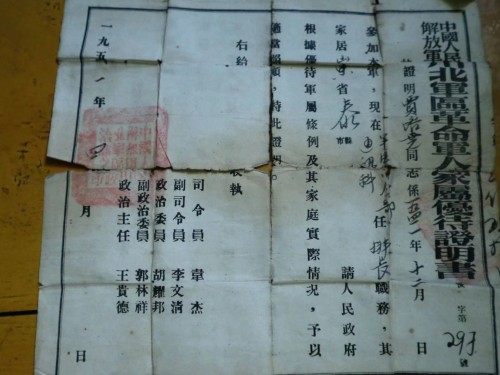 中國人民
解放軍
北軍區革命軍人家屬優待證明書
字第293號
證明同志係一九四一年十二月 日
參加本軍,現在通訊科任 長職務,其
家居 省 市縣 請人民政府
根據優待軍屬條例及其家庭實際情況,予以
適當照顧,特此證明。
右給 執
司令員 韋杰
副司令員 李文清
政治委員 胡耀邦
副政治委員 郭林祥
政治主任 王貴德
一九五一年 四月 日